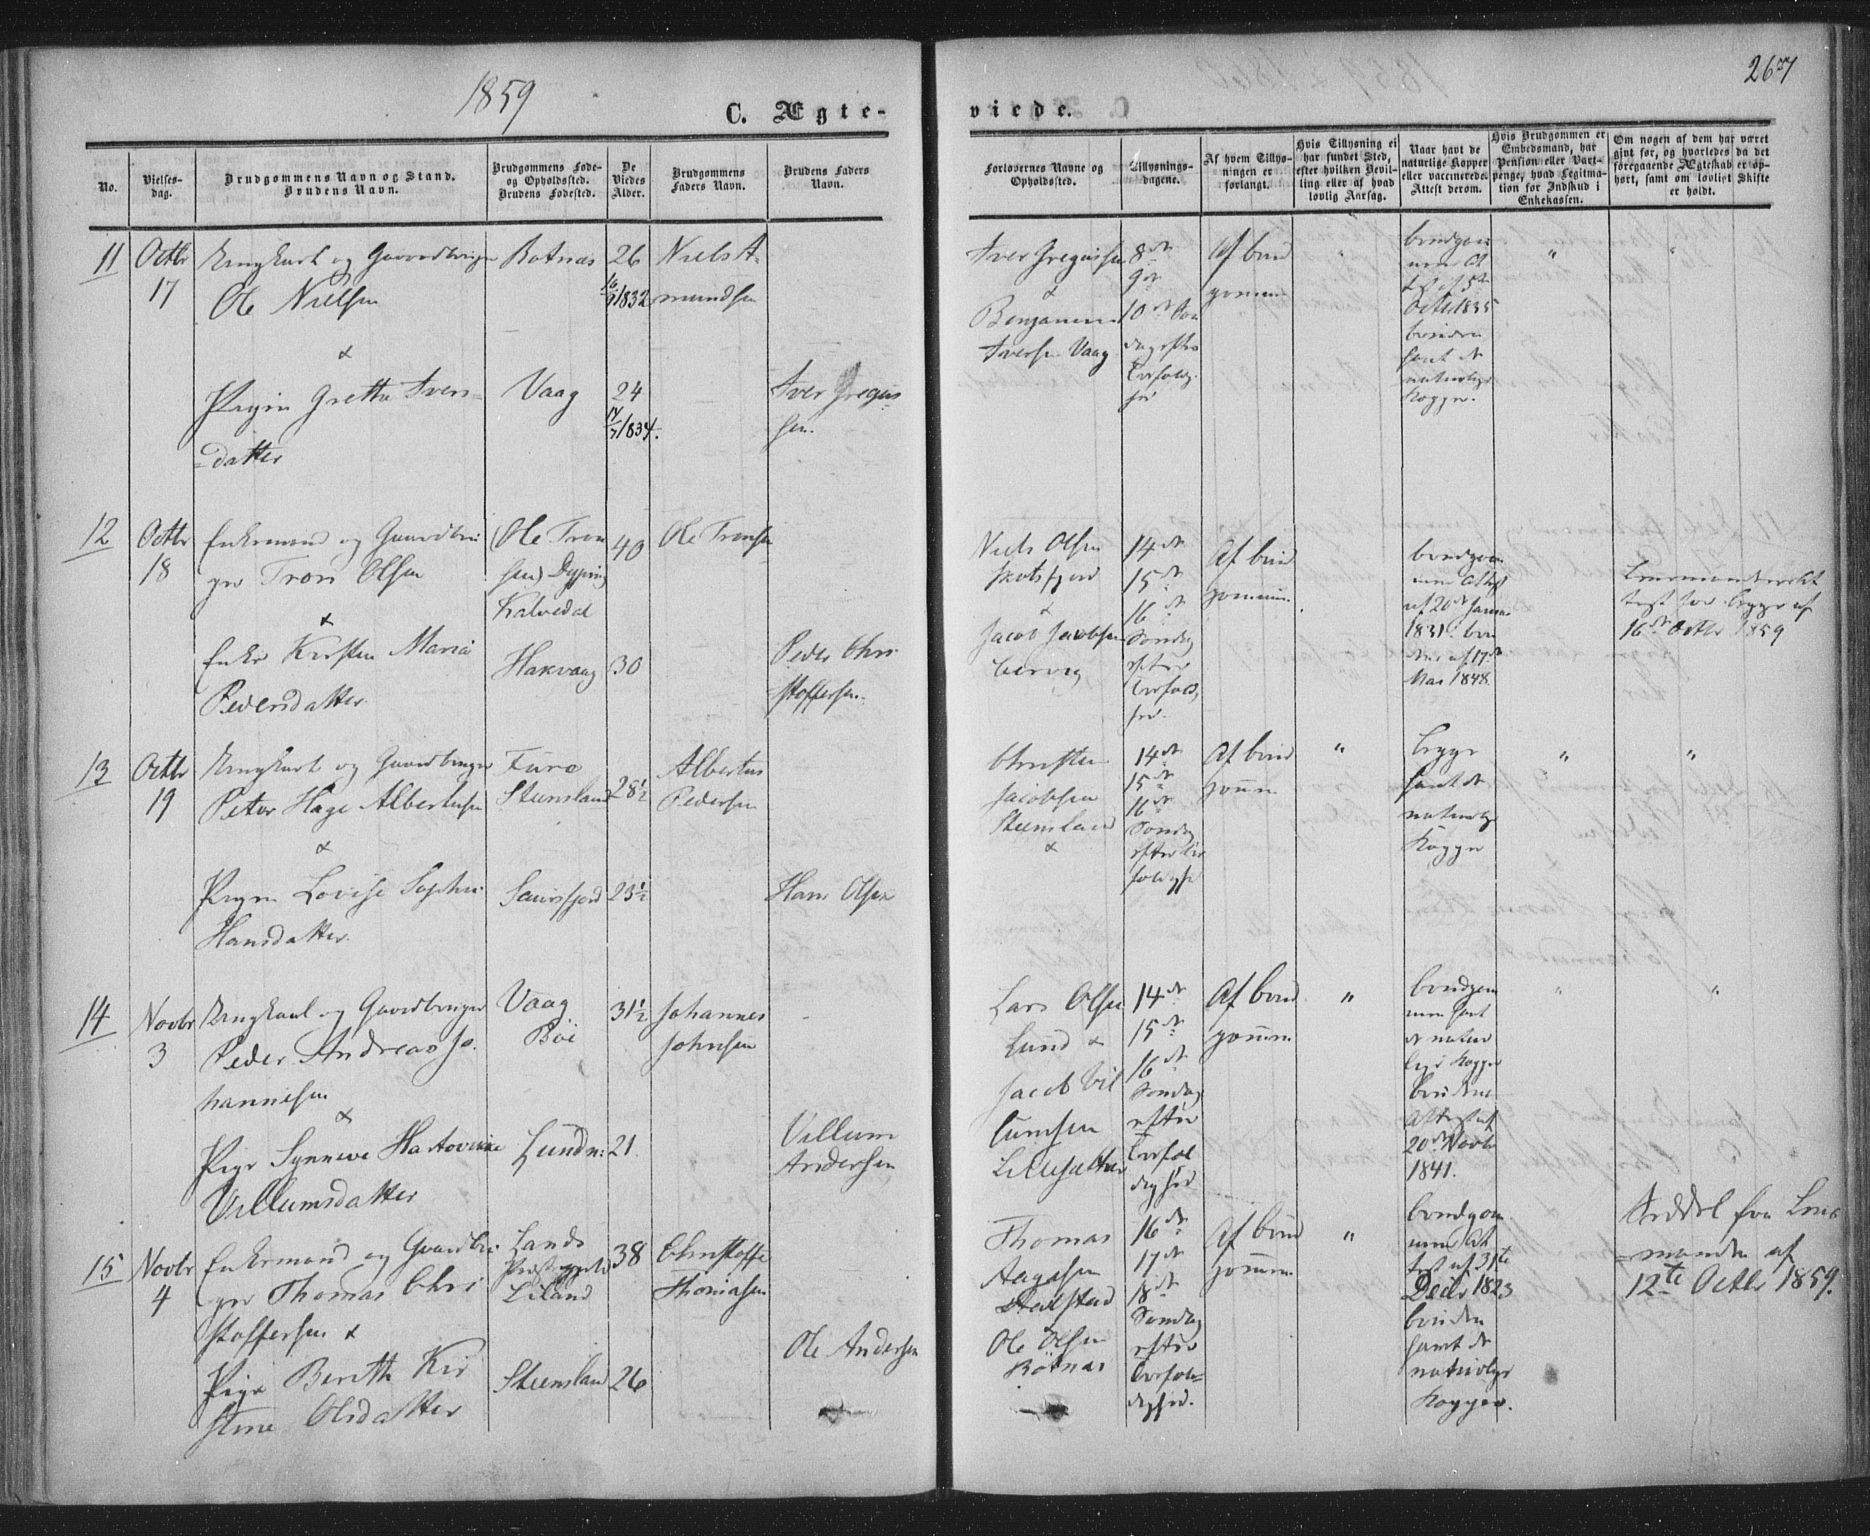 1859
267
C. Ægte-
viede.
No.
Vielses-
dag.
Brudgommens Navn og Stand.
Brudens Navn.
Brudgommens Føde-
og Opholdssted.
Brudens Fødested.
De
Viedes
Alder.
Brudgommens
Faders Navn.
Brudens Faders
Navn.
Forlovernes Navne og
Opholdssted.
Tillysnings-
dagene.
Af hvem Tillys-
ningen er
forlangt.
Hvis Tillysning ei
har fundet Sted,
efter hvilken Bevil-
ling eller af hvad
lovlig Aarsag.
Naar havt de
naturlige Kopper
eller vaccinerede.
Attest derom.
Hvis Brudgommen er
Embedsmand, har
Pension eller Vart-
penge, hvad Legitima-
tion for Indskud i
Enkekassen.
Om nogen af dem har været
gift før, og hvorledes da det
foregaaende Ægteskab er op-
hørt, samt om lovligt Skifte
er holdt.
11
Octbr
17
Ungkarl og Gaardbruger
Ole Nielsen
&
Pigen Gretha Ivers-
datter
Botnæs
Vaag
26
1832
24
1834.
Niels A-
mundsen
Iver Gregus
sen.
Iver Gregussen
&
Benjamin
Iversen Vaag
8de
9de
10de
Af brud
gommen
brudgom
men At
test af 5te
Octbr 1835
bruden
havt de
naturlige
Kopper.
12
Octbr
18
Enkemand og Gaardbru
ger Tron Olsen
&
Enke Kirsten Maria
Pedersdatter
(Ole Tron
sen) Dyping
Kalvedal
Hakvaag
40
30
Ole Tronsen
Peder Chri
stoffersen.
Niels Olsen
&
Jacob Jacobsen
14de
15de
16de
Søndag
efter
Af brud
gommen
brudgom
men Attest
af 20de Janua
1831. bru
den af 17de
Mai 1848.
test for begge af
16de Octbr 1859
13
Octbr
19
Ungkarl og Gaardbruger
Peter Hage Albertusen
&
Pigen Lovise Sophie
Hansdatter.
Furø
Steensland
28½
23½
Albertus
Pedersen
Hans Olsen
Christen
Jacobsen
Steensland
&
14de
15de
16de
Søndag
Af brud
gomm
"
begge
havt de
naturlige
Kopper
"
"
14
Novbr
3
Ungkarl og Gaardbruger
Peder Andreas Jo
hannesen
&
Pige Synneve Hartovikke
Villumsdatter
Vaag
Böe
Lund
31½
21.
Johannes
Johnsen
Villum
Andersen
Lars Olsen
Lund &
Jacob Vil
lumsen
14de
15de
16de
Søndag
efter
Af brud
gomm
"
brudgom
men havt
de natur
lige Kopper
bruden
Attest af
20de Novbr
1841.
"
"
15
Novbr
4
Enkemand og Gaardbru
ger Thomas Chri
stoffersen &
Pige Berith Kir
stine Olsdatter
Lands
Præstegjeld
Steensland
38
26
Christoffe
Thomasen
Ole Andersen
Thomas
Aagasen
&
Ole Olsen
Bötnæs
16de
17de
18de
Søndag
efter
Af brud
gommen
"
brudgom
men At
test af 31te
Decbr 1823
bruden
havt de
naturlige
Kopper.
Seddel fra Lens
manden af
12te Octbr 1859.